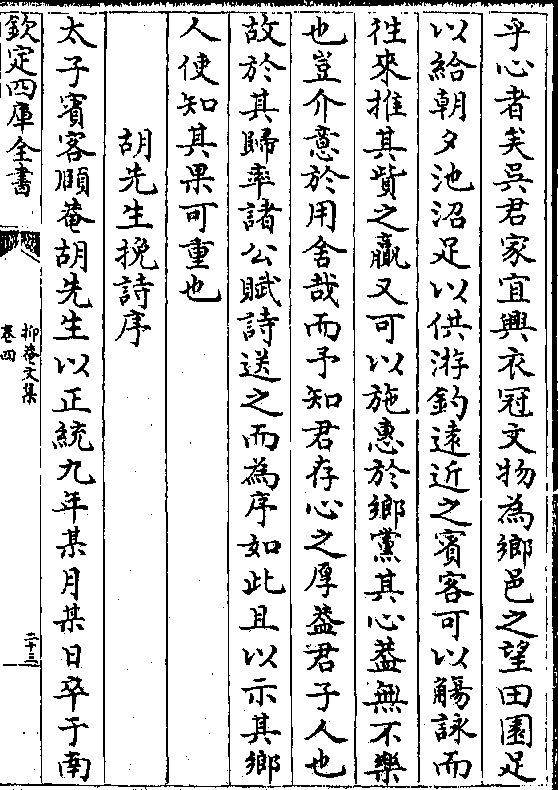 乎心者矣吳君家宜興衣冠文物為鄉邑之望田園足
以給朝夕池沼足以供游釣遠近之賓客可以觴詠而
徃來推其貲之贏又可以施惠於鄉黨其心葢無不樂
也豈介意於用舍哉而予知君存心之厚葢君子人也
故於其歸率諸公賦詩送之而為序如此且以示其鄉
人使知其果可重也
胡先生挽詩序
太子賓客頤菴胡先生以正統九年某月某日卒于南
欽定四庫全書
抑菴文集
卷四
二十三